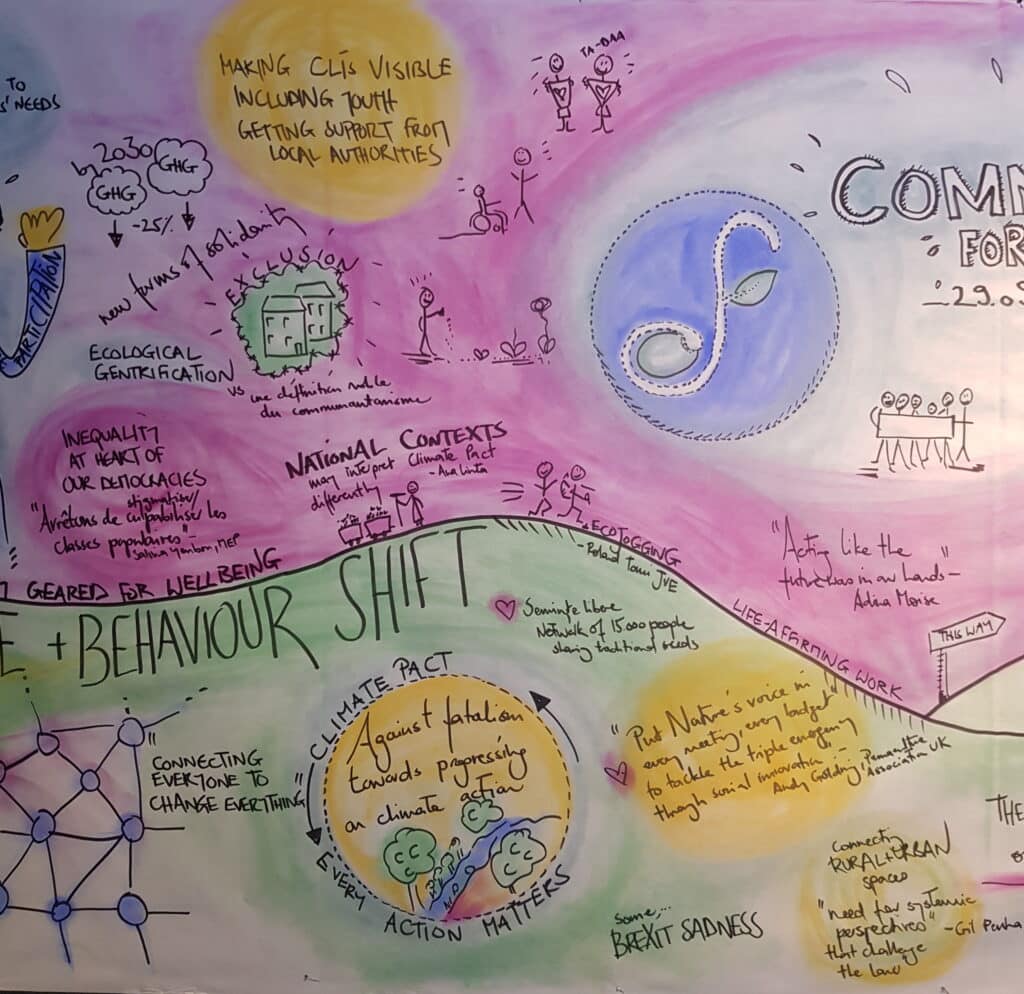 TO
S' NEEDS
MAKING CLIs VISIBLE
INCLUDING YOUTH
GETTING SUPPORT FROM
LOCAL AUTHORITIES
TA-DAA
by 2030
GHG
GHG
-25%
PARTICIPATION
new forms of solidarity
EXCLUSION
ECOLOGICAL
GENTRIFICATION
vs une définition
du communautarisme
COMM
FOR
29.0
INEQUALITY
AT HEART OF
OUR DEMOCRACIES
stigmatiser/
"Arrêtons de culpabiliser les
classes populaires" -
MEP
NATIONAL CONTEXTS
may interpret Climate Pact
differently
ECOJOGGING
- Roland JVE
GEARED FOR WELLBEING
E + BEHAVIOUR SHIFT
Network of 15000 people
sharing traditional seeds
"Acting like the
future was in our hands" -
Adina
LIFE-AFFIRMING WORK
THIS WAY
"CONNECTING
EVERYONE TO
CHANGE EVERYTHING"
CLIMATE PACT
Against fatalism
towards progressing
on climate action
EVERY
ACTION MATTERS
"Put Nature's voice in
every meeting, every budget"
to tackle the triple emergency
through social innovation" -
Andy Goldring, Permaculture
Association UK
some...
BREXIT SADNESS
Connecting
RURAL + URBAN
spaces
"need for systemic
perspectives" - Gil
that challenge
the law"
THE